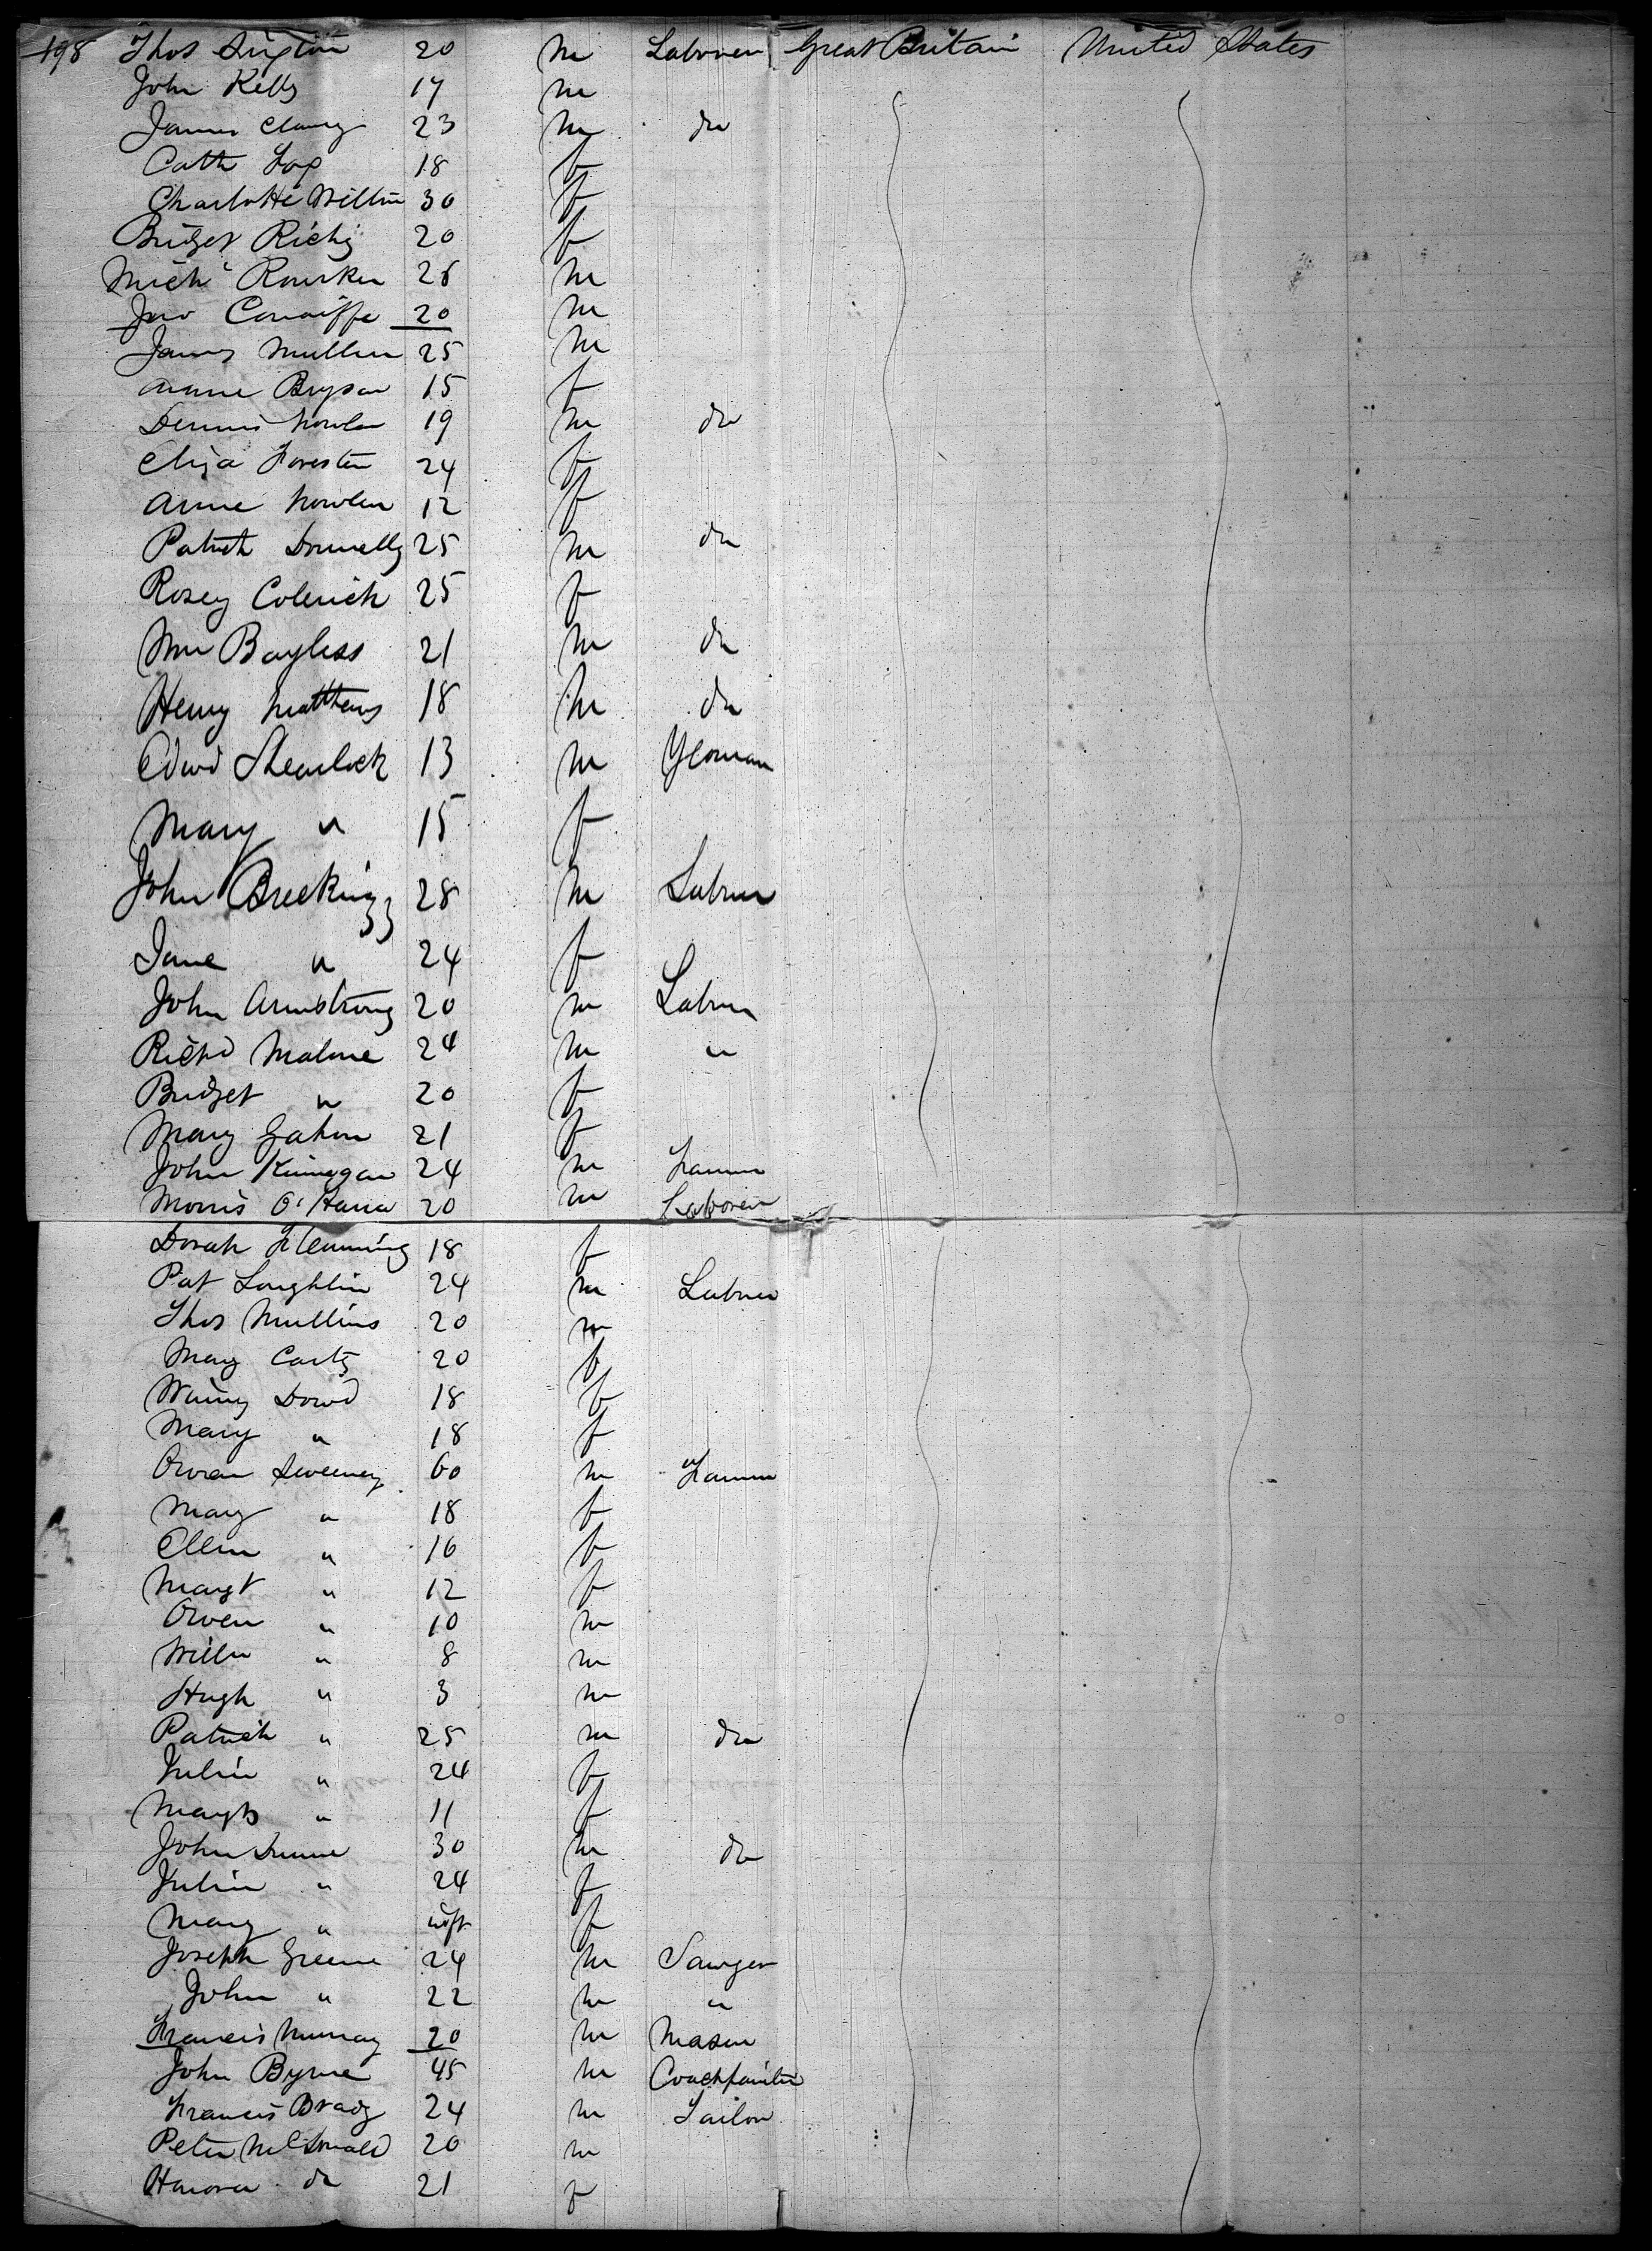 198 Thos 20 m Laborer Great Britain United States
John Kelly 17 m
James Clancy 23 m do
Cath Fox 18 f
Charlotte 30 f
Bridget 20 f
Mich Rourke 26 m
Cunniffe 20 m
James Mullen 25 m
Anne Bryson 15 f
Dennis Nowlan 19 m do
Eliza Forester 24 f
Anne Nowlan 12 f
Patrick Donnelly 25 m do
Rosey Colerick 25 f
Wm Bayless 21 m do
Henry Matthews 18 m do
Edwd Shearlock 13 m Yeoman
Mary " 15 f
John 28 m Laborer
Jane " 24 f
John Armstrong 20 m Laborer
Richd Malone 24 m "
Bridget " 20 f
Mary Gahan 21 f
John Kinnegan 24 m Farmer
Morris O'Hara 20 m Laborer
Dorah Flemming 18 f
Pat Loughlin 24 m Laborer
Thos Mullins 20 m
Mary 20 f
Winny Dowd 18 f
Mary " 18 f
Owen Sweeney 60 m Farmer
Mary " 18 f
Ellen " 16 f
Margt " 12 f
Owen " 10 m
Willm " 8 m
Hugh " 3 m
Patrick " 25 m do
Julia " 24 f
Margt " 11 f
John Dunne 30 m do
Julia " 24 f
Mary " inft f
Joseph Greene 24 m Sawyer
John " 22 m "
Francis Murray 20 m Mason
John Byrne 45 m Coachpainter
Francis Brady 24 m Tailor
Peter McDonald 20 m
Hanora do 21 f